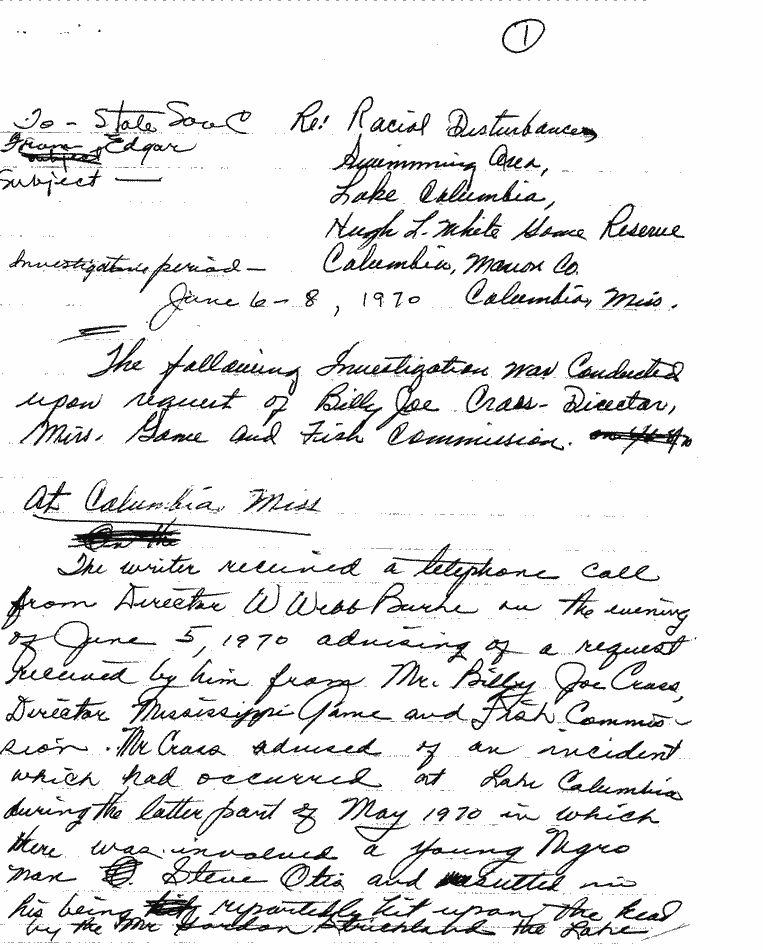 1
To - State Sov C Re: Racial Disturbances
From Edgar Swimming Area,
Subject — Lake Columbia,
Hugh L. White Game Reserve
Investigative period — Columbia, Marion Co.
June 6 - 8, 1970 Columbia, Miss.
The following Investigation was Conducted
upon request of Billy Joe Cross - Director,
Miss. Game and Fish Commission.
At Columbia, Miss
On the
The writer received a telephone call
from Director W Webb Burke on the evening
of June 5, 1970 advising of a request
received by him from Mr. Billy Joe Cross,
Director Mississippi Game and Fish Commis-
sion. Mr Cross advised of an incident
which had occurred at Lake Columbia
during the latter part of May 1970 in which
there was involved a young Negro
man Steve Otis and resulted in
his being reportedly hit upon the head
by the Mr Gordon Strickland the Lake